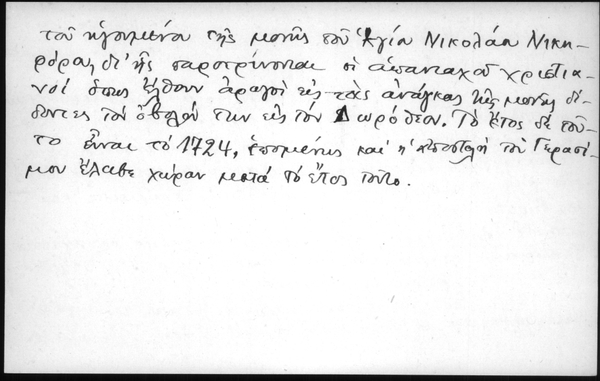 τοῦ ἡγουμένου τῆς μονῆς τοῦ Ἁγίου Νικολάου Νικη-
φόρου, δι' ἧς παροτρύνονται οἱ ἁπανταχοῦ χριστια-
νοί ὅπως ἔλθουν ἀρωγοὶ εἰς τὰς ἀνάγκας τῆς μονῆς δί-
δοντες τὸν ὀβολόν των εἰς τὸν Δωρόθεον. Τὸ ἔτος δὲ τοῦ-
το εἶναι τὸ 1724, ἑπομένως καὶ ἡ ἀποστολὴ τοῦ Γερασί-
μου ἔλαβε χώραν μετά τὸ ἔτος τοῦτο.